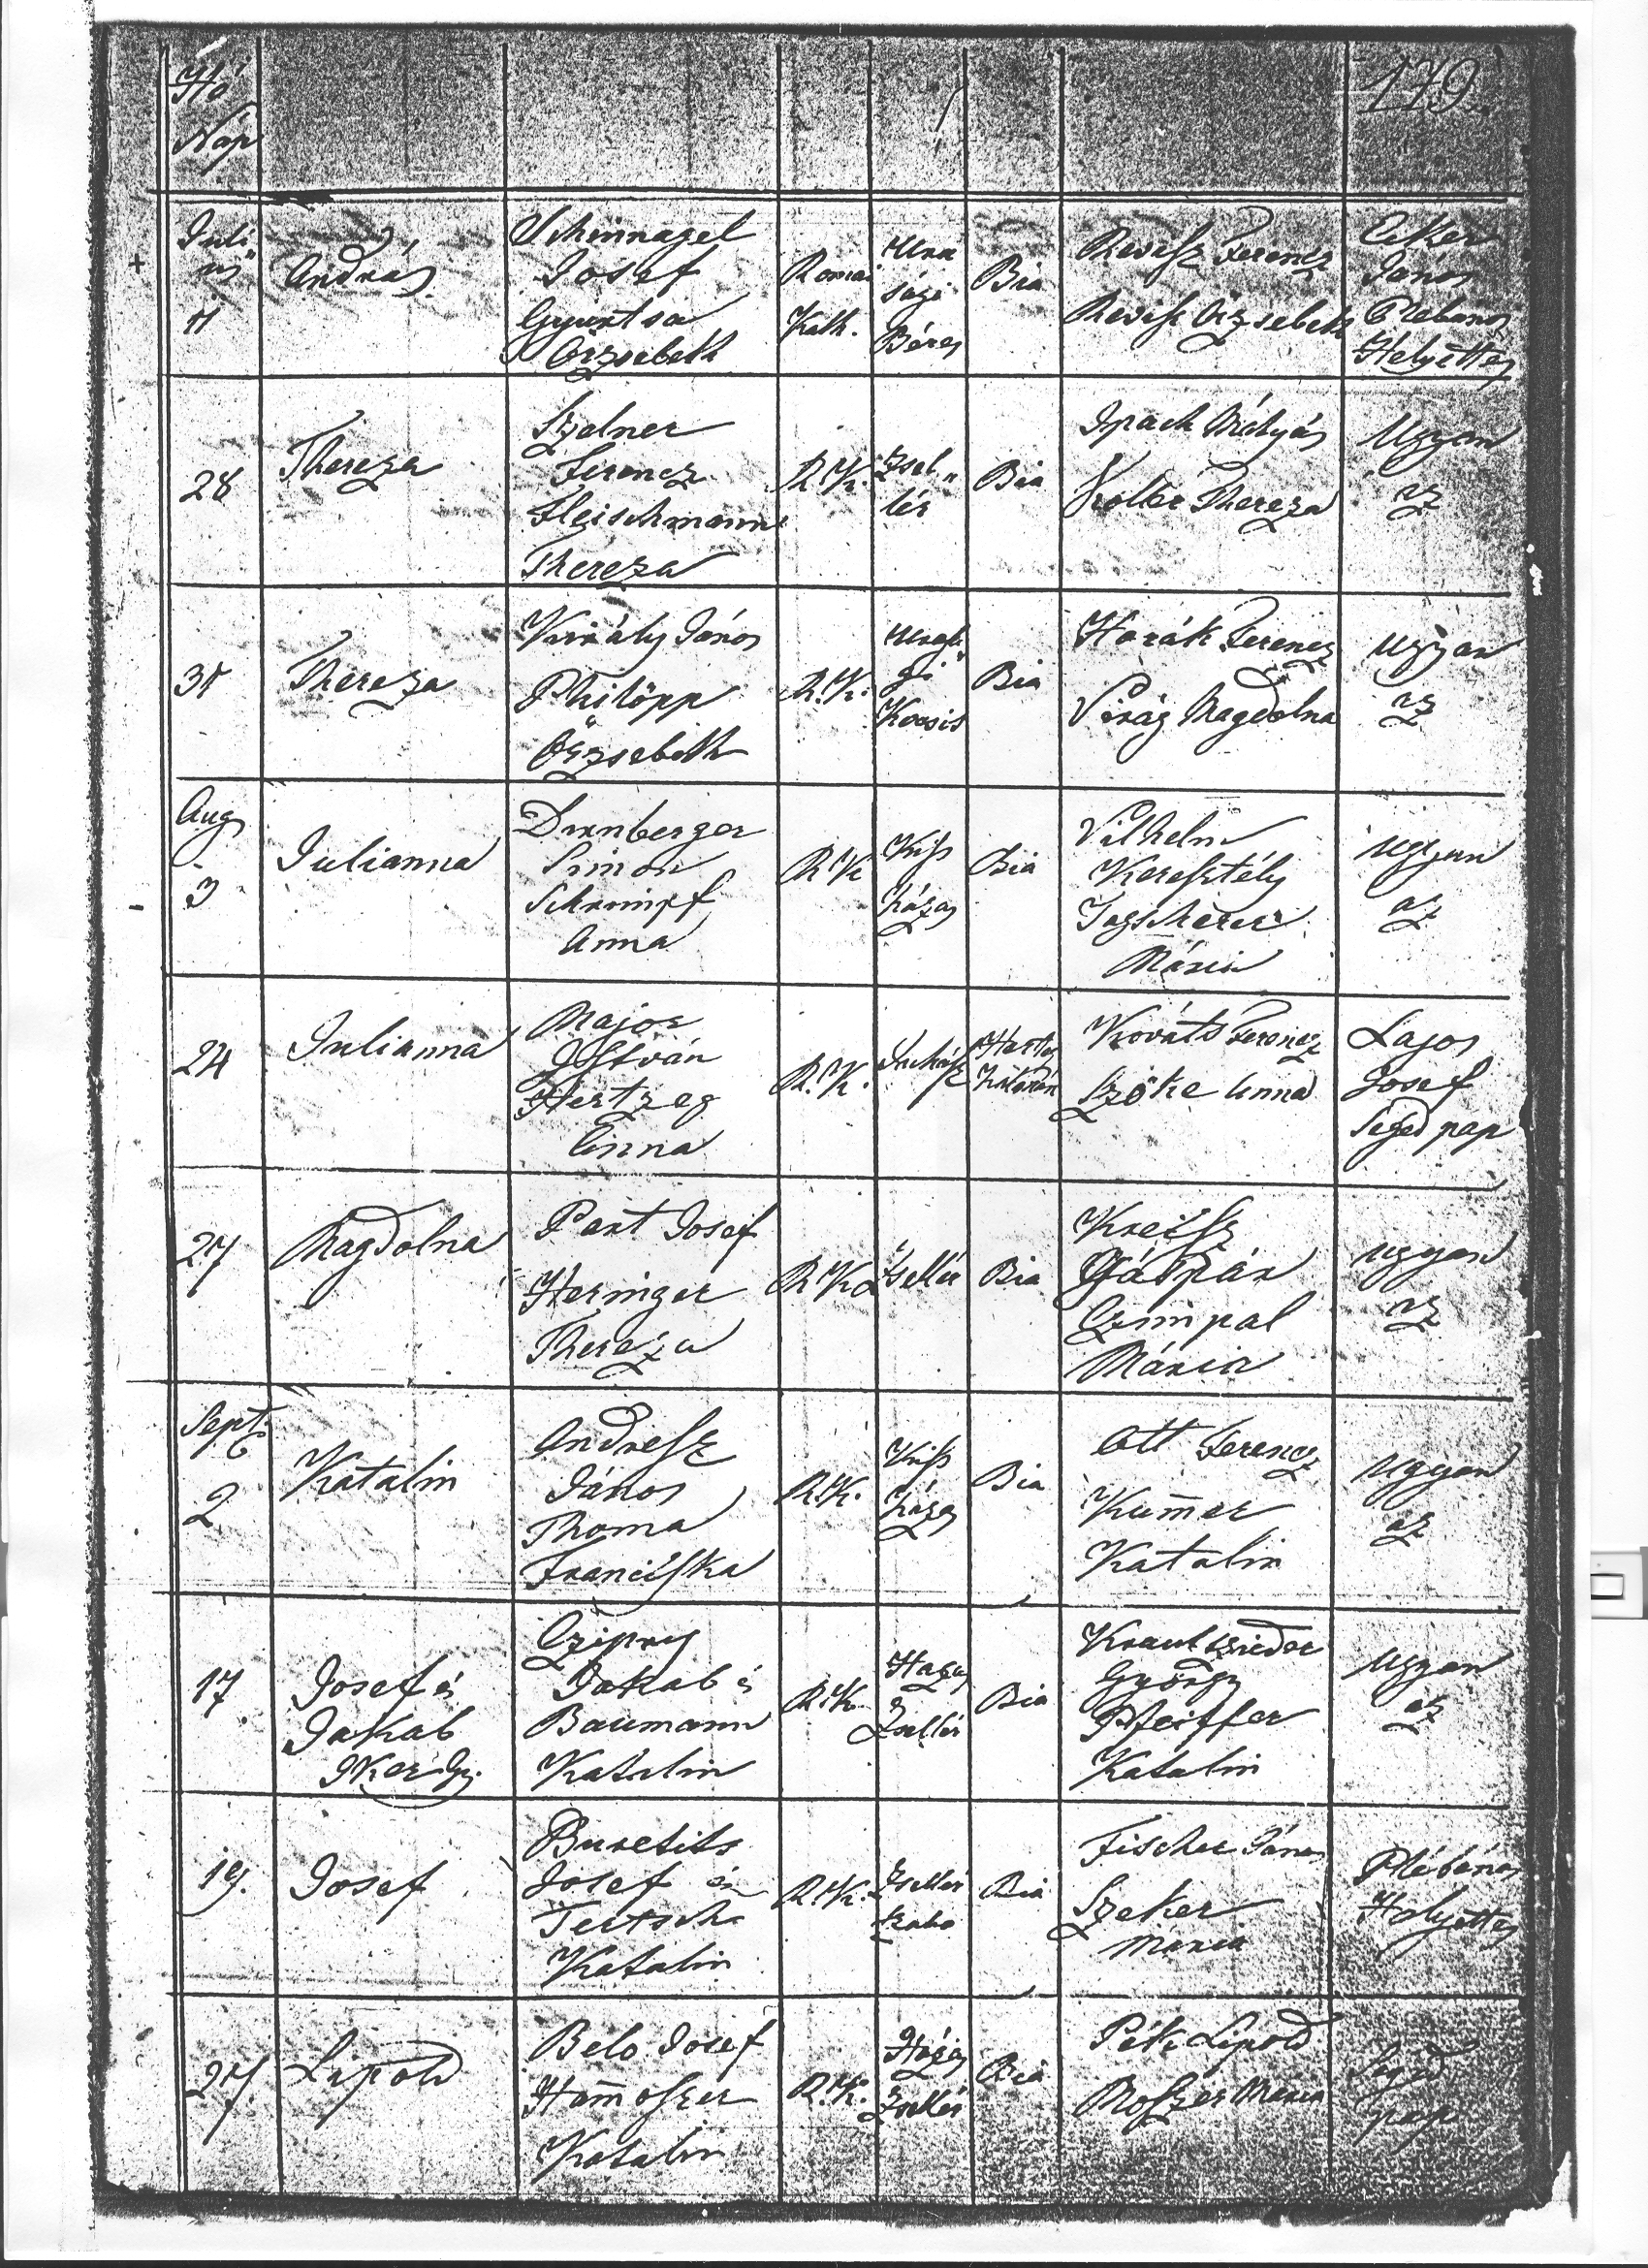 Hó
Náp
179.
Juli
us
11
András
Schinnagel
Josef
Gyurtsa
Örzsebeth
Romai
Kath.
Ura
sági
Béres
Bia
Revesz Ferencz
Revisz Örzsebeth
Eker
János
Plebános
Helyettes
28
Thereza
Szolner
Ferencz
Fleischmann
Thereza
R. K.
Zsel„
lér
Bia
Ipach Mátyás
Koller Thereza
Ugyan
az
31
Thereza
Király János
Philöpp
Örzsebeth
R. K.
gi
Kocsis
Bia
Horák Ferencz
Virág Magdolna
ugyan
az
Aug
3
Julianna
Dirnberger
Simon
Schrimpf
Anna
R K
Kiss
házas
Bia
Vilhelm
Keresztély
Jagscherer
Mária
ugyan
az
24
Julianna
Major
Istvván
Hertzeg
Anna
R. K.
Juhász
Kovats Ferencz
Szöke Anna
Lajos
Josef
Seged pap
27
Magdolna
Pert Josef
Heringer
Thereza
R K
Zsellér
Bia
Kreisz
Gáspár
Czimpal
Mária
ugyan
az
Sept
2
Katalin
Andresz
János
Thoma
Franciska
R. K.
Kiss
házas
Bia
Ott Ferencz
Kum̄er
Katalin
ugyan
az
17
Josef és
Jakab
Iker Gy.
Czipry
Jakab és
Baumann
Katalin
R. K.
Házas
Zsellér
Bia
Krautszieder
György
Pfeiffer
Katalin
ugyan
az
19.
Josef
Buretits
Josef és
Tertsch
Katalin
R. K.
Zsellér
szabo
Bia
Fischer János
Szeker
Mária
Plébános
Helyettes
27.
Lipold
Belo Josef
Ham̄oszer
Katalin
R. K.
Házas
Zsellér
Bia
Pék Lipold
Moszer Mária
Seged
pap